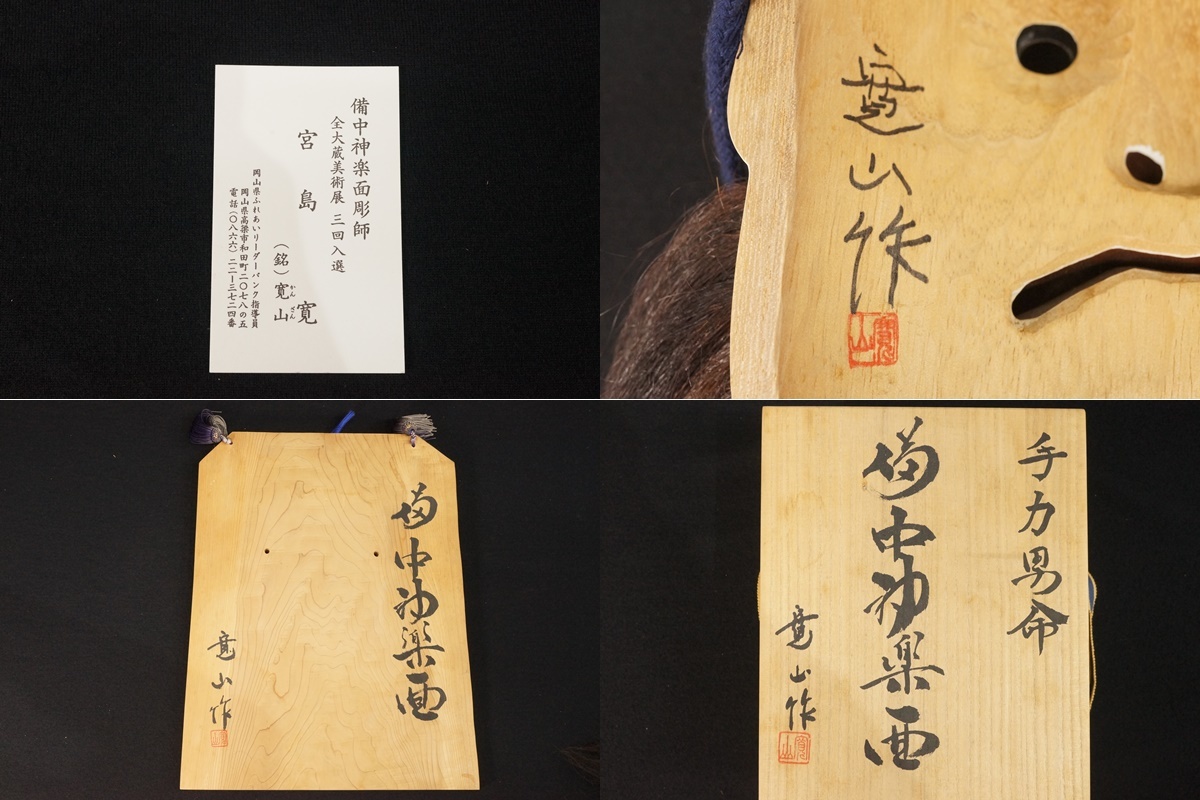 備中神楽面彫師
全大蔵美術展 三回入選
宮島 寛
(銘)寛山
かんざん
岡山県ふれあいリーダーバンク指導員
岡山県高梁市和田町二〇七八の五
電話(〇八六六)二二ー三七二四番
寛山作
寛山
備中神楽面
寛山作
寛山
手力男命
備中神楽面
寛山作
寛山